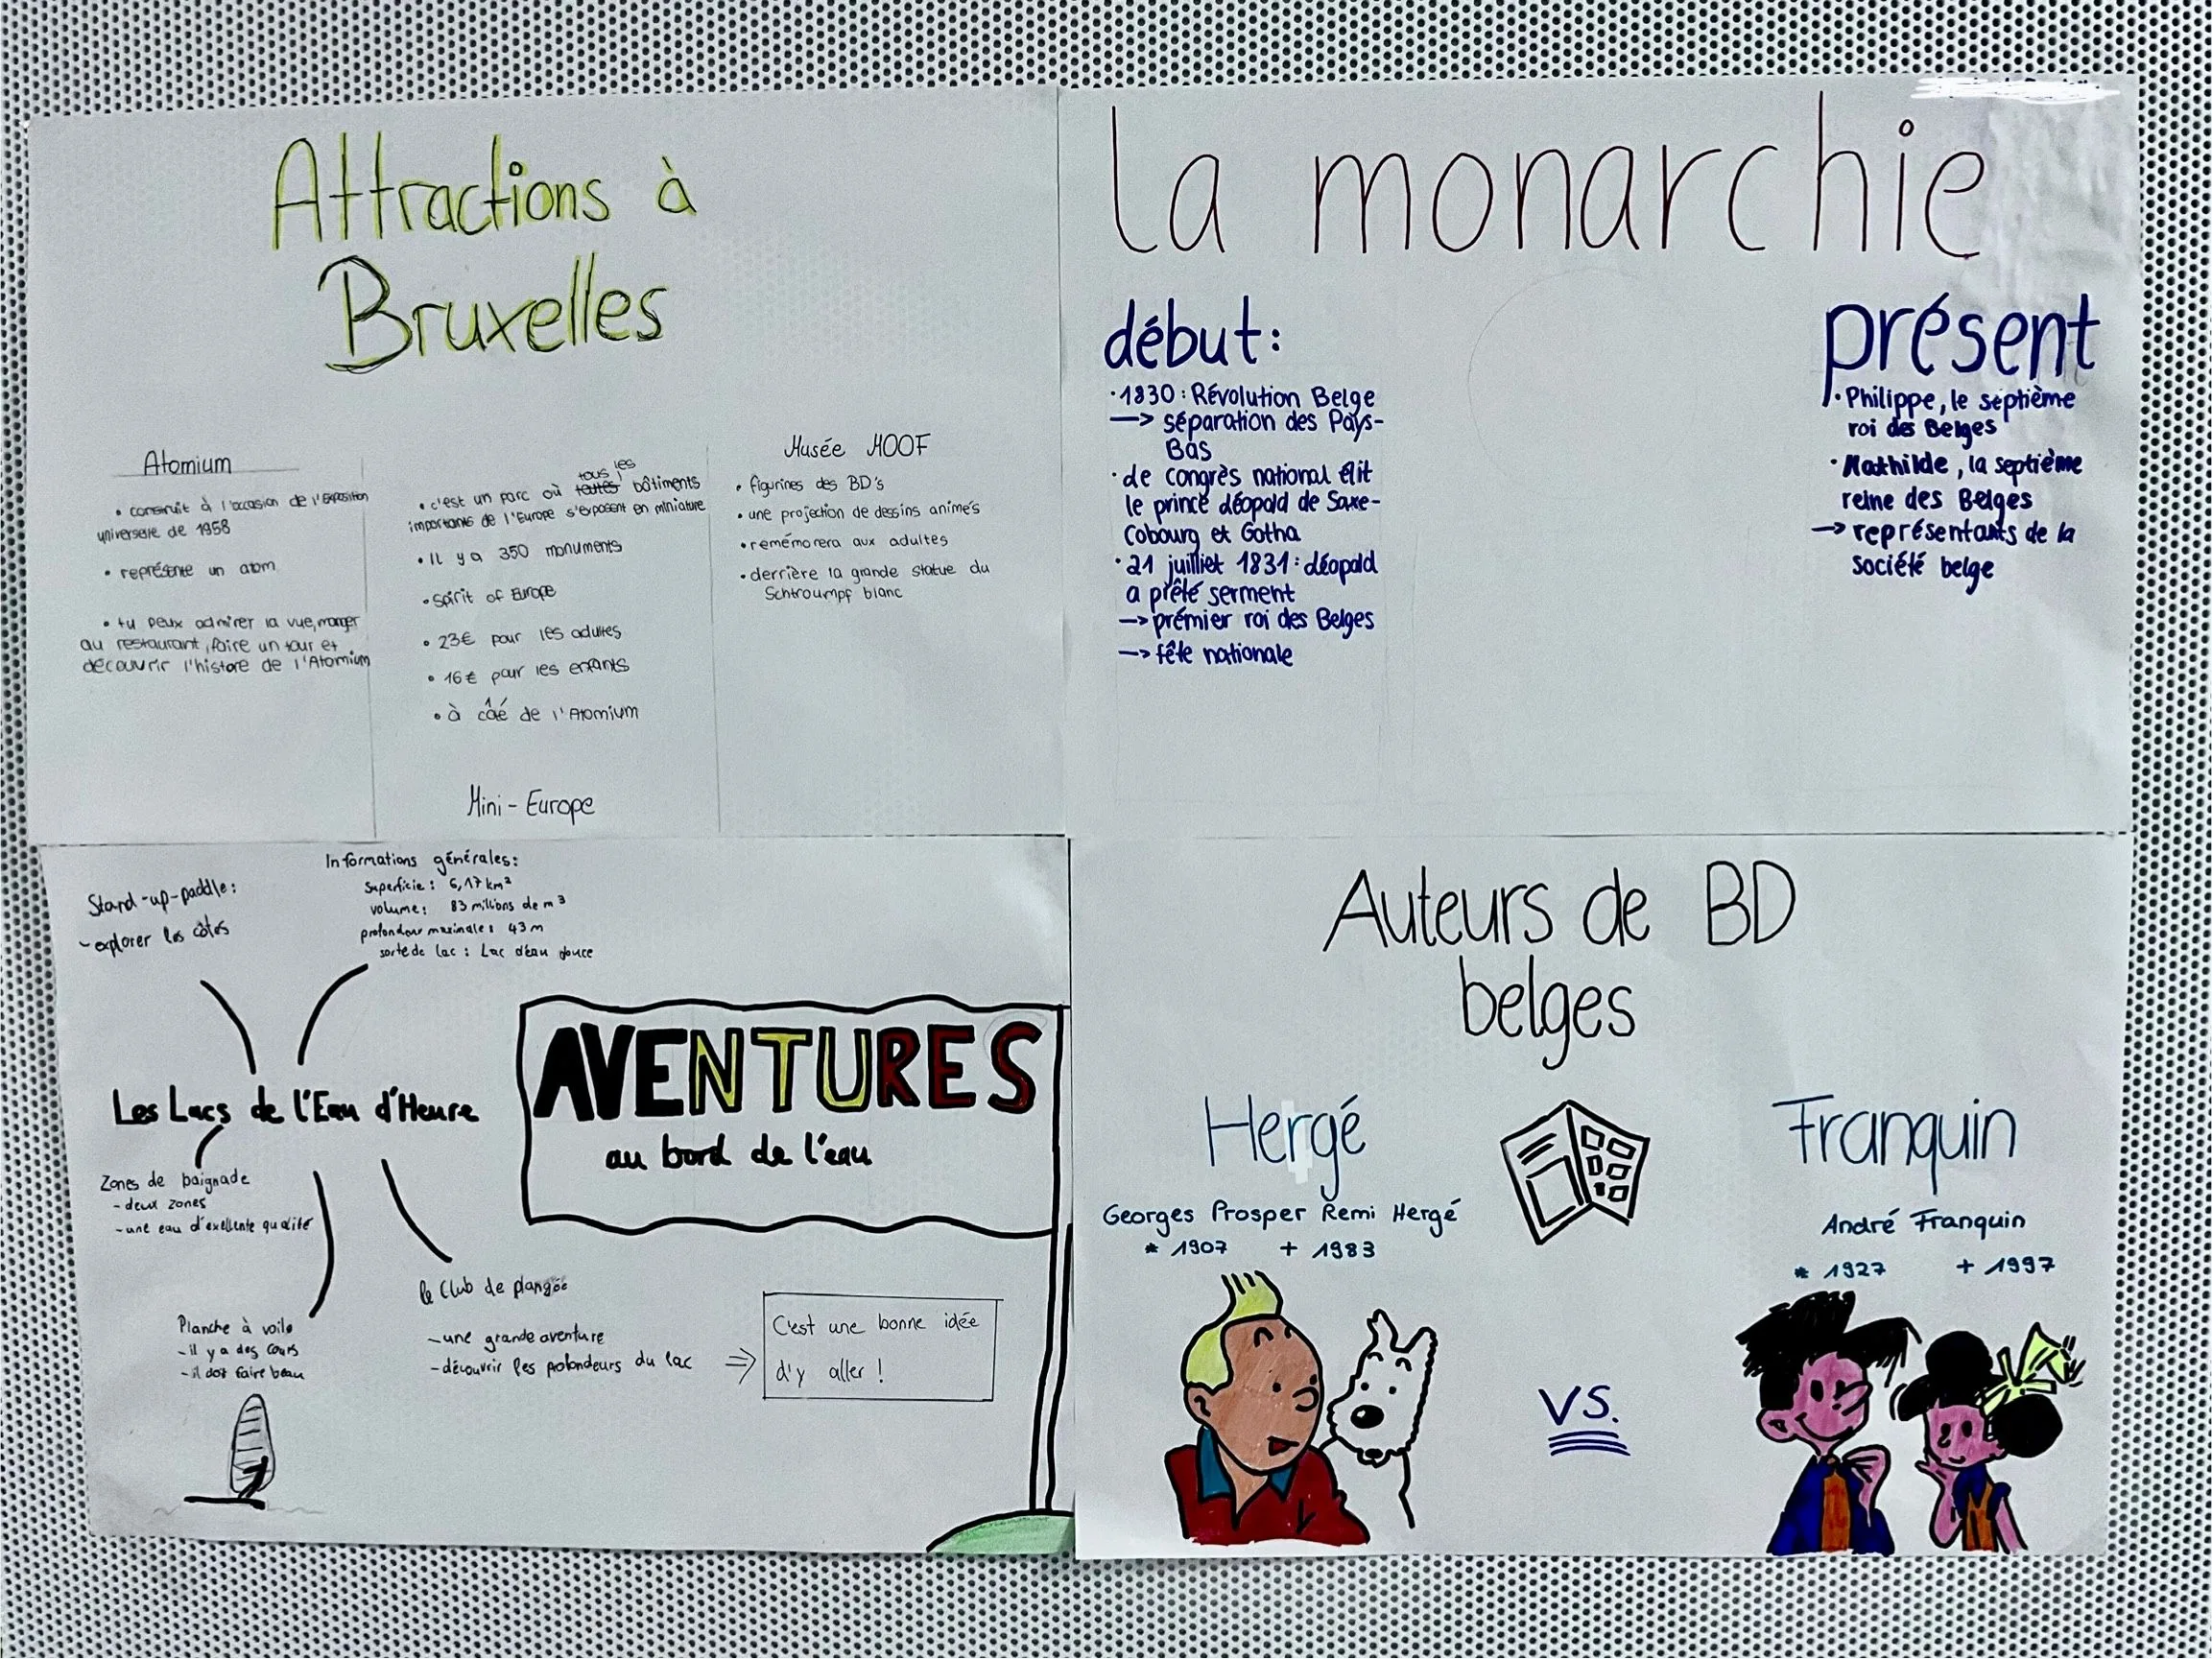 Attractions à
Bruxelles
Atomium
• construit à l'occasion de l'Exposition
universelle de 1958
• représente un atom
• tu peux admirer la vue, manger
au restaurant, faire un tour et
découvrir l'histore de l'Atomium
tous les
• c'est un parc où toutes bâtiments
importants de l'Europe s'exposent en miniature
• Il y a 350 monuments
• Spirit of Europe
• 23€ pour les adultes
• 16€ pour les enfants
• à côté de l'Atomium
Mini-Europe
Musée MOOF
• figurines des BD's
• une projection de dessins animés
• remémorera aux adultes
• derrière la grande statue du
Schtroumpf blanc
la monarchie
début:
• 1830: Révolution Belge
—> séparation des Pays-
Bas
• de congrès national élit
le prince déopold de Saxe-
Cobourg et Gotha
• 21 juilliet 1831: déopold
a prêté serment
—> prémier roi des Belges
—> fête nationale
présent
• Philippe, le septième
roi des Belges
• Mathilde, la septième
reine des Belges
—> représentants de la
société belge
Stand-up-paddle:
- explorer les côtés
Informations générales:
Superficie: 6,17 km²
volume: 83 millions de m³
profondeur maximale: 43 m
sorte de lac: Lac d'eau douce
Les Lacs de l'Eau d'Heure
Zones de baignade
- deux zones
- une eau d'exellente qualité
Planche à voile
- il y a des cours
- il doit faire beau
le Club de plangée
- une grande aventure
- découvrir les profondeurs du lac
=> C'est une bonne idée
d'y aller!
AVENTURES
au bord de l'eau
Auteurs de BD
belges
Hergé
Georges Prosper Remi Hergé
* 1907 + 1983
VS.
Franquin
André Franquin
* 1927 + 1997